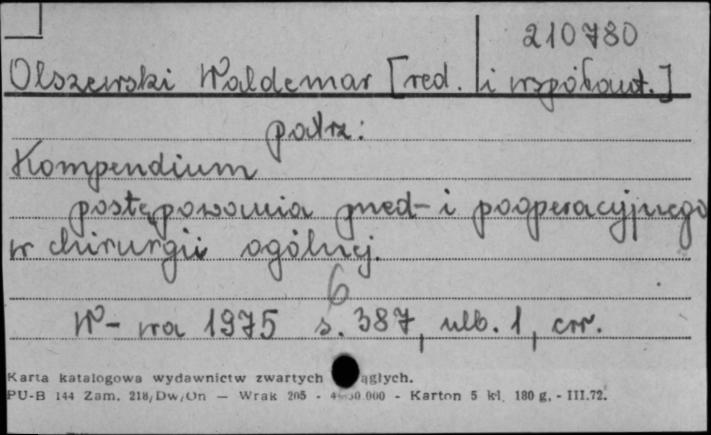 210780
Olszewski Waldemar [red. i współaut.]
patrz:
Kompendium
postępowania przed- i pooperacyjnego
w chirurgii ogólnej.
6
W-wa 1975 s. 387, ulb. 1, err.
Karta katalogowa wydawnictw zwartych ągłych.
PU-B 144 Zam. 218/Dw/Un — Wrak 205 - 000 - Karton 5 kl. 180 g. - III.72.